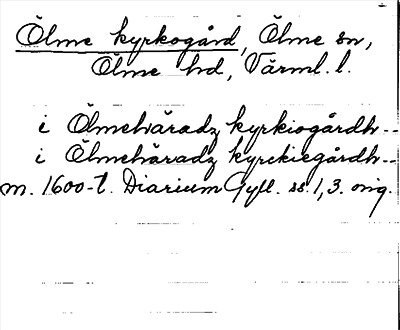 Ölme kyrkogård, Ölme sn,
Ölme hd, Värml. l.
i Ölmehäradz kyrkiogårdh --
i Ölmehäradz kyrckiegårdh --
m. 1600-t. Diarium Gyll. ss. 1, 3. orig.